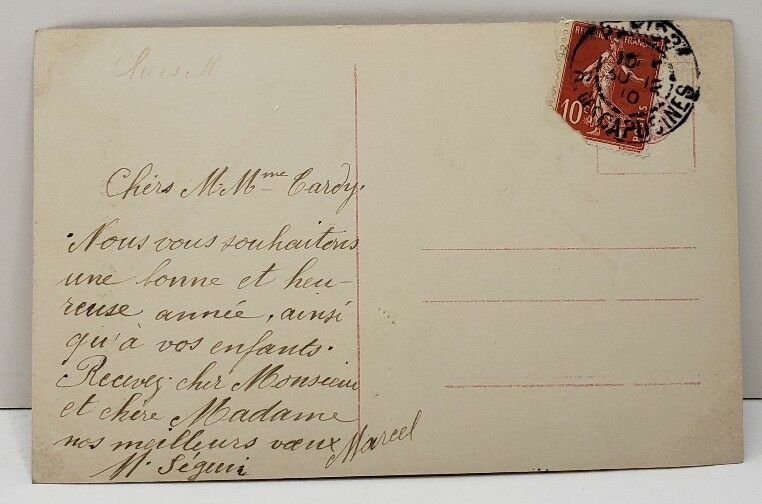 Chers M
Chers M. Mme Tardy.
Nous vous souhaitons
une bonne et heu-
reuse année, ainsi
qu'à vos enfants.
Recevez cher Monsieur
et chère Madame
nos meilleurs vœux
M. Séguin Marcel
REPUBLIQUE FRANÇAISE
10c
POSTES
PARIS
30 12
10
R. DES CAPUCINES